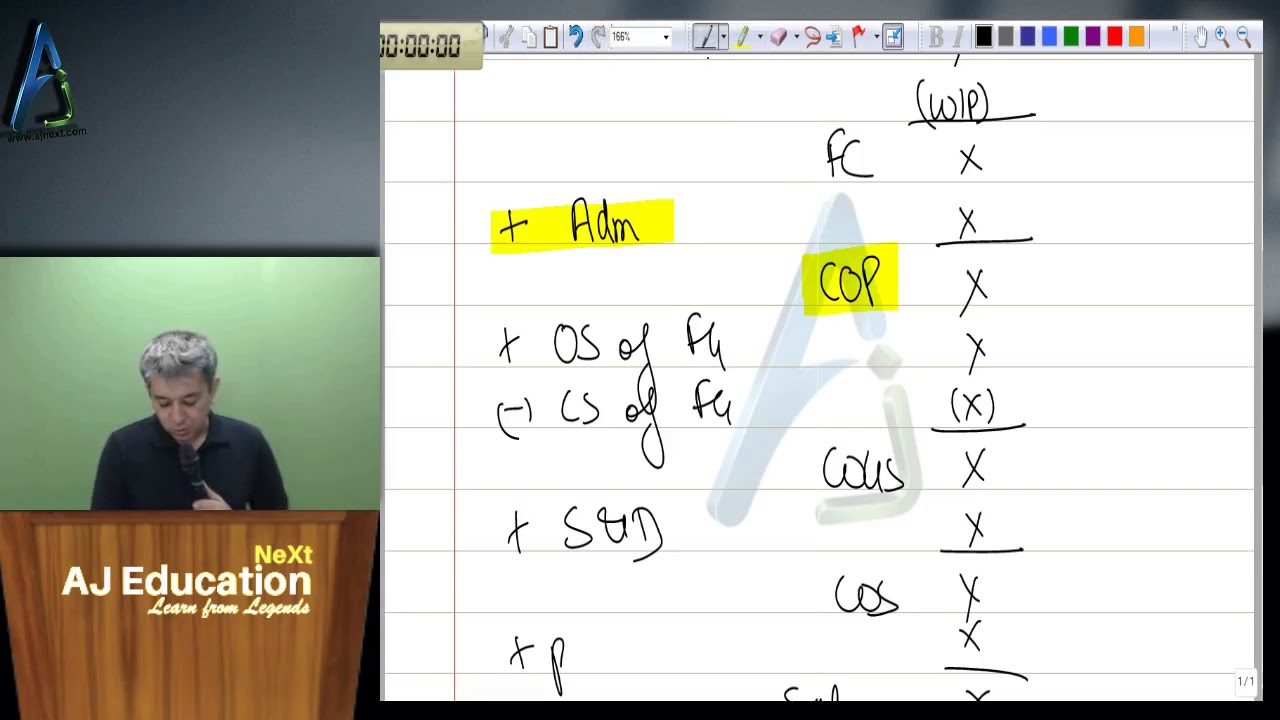 www.ajnext.com
00:00:00
166%
B I
(WIP)
FC X
+ Adm X
COP X
+ OS of FG X
(-) CS of FG (X)
COGS X
+ S&D X
COS X
+ P X
X
1/1
NeXt
AJ Education
Learn from Legends